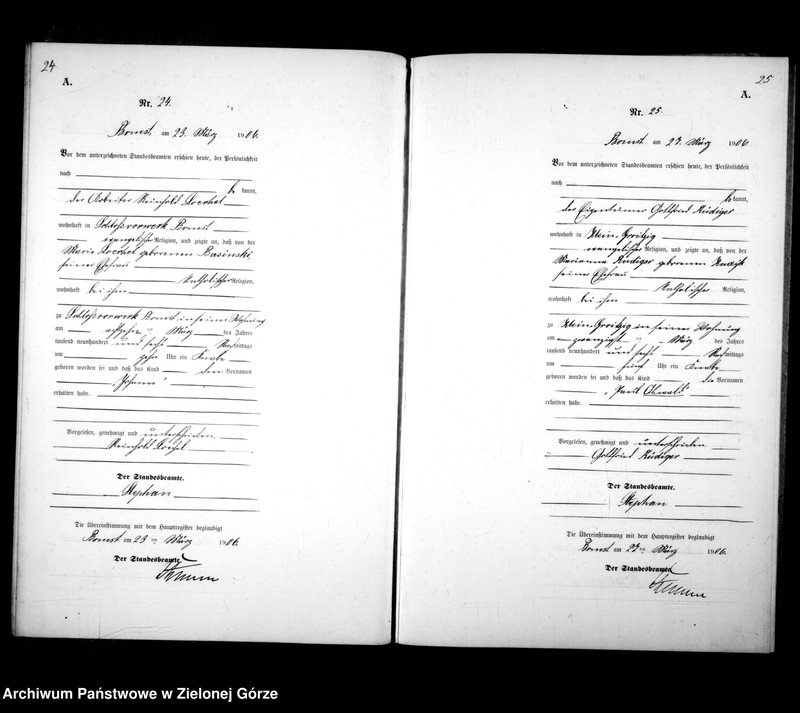 24
A.
Nr. 24.
Bomst am 23. März 1906.
Vor dem unterzeichneten Standesbeamten erschien heute, der Persönlichkeit
nach
be kannt,
der Arbeiter Reinhold
wohnhaft in Schloßvorwerk Bomst
evangelischer Religion, und zeigte an, daß von der
Maria geborenen Basinski
seiner Ehefrau
katholischer Religion,
wohnhaft bei ihm
zu Schloßvorwerk Bomst in seiner Wohnung
am ten März des Jahres
tausend neunhundert und sechs Nachmittags
um zehn Uhr ein Knabe
geboren worden sei und daß das Kind den Vornamen
„Johann“
erhalten habe.
Vorgelesen, genehmigt und unterschrieben.
Reinhold
Der Standesbeamte.
Stephan
Die Übereinstimmung mit dem Hauptregister beglaubigt
Bomst am 23 ten März 1906.
Der Standesbeamte.
25
A.
Nr. 25.
Bomst am 27. März 1906
Vor dem unterzeichneten Standesbeamten erschien heute, der Persönlichkeit
nach
be kannt,
der Eigentümer Gottfried Rüdiger
wohnhaft in Klein-Groitzig
evangelischer Religion, und zeigte an, daß von der
Marianna Rüdiger geborenen
seiner Ehefrau
katholischer Religion,
wohnhaft bei ihm
zu Klein-Groitzig in seiner Wohnung
am ten März des Jahres
tausend neunhundert und sechs Nachmittags
um fünf Uhr ein Knabe
geboren worden sei und daß das Kind die Vornamen
„Paul Oswald“
erhalten habe.
Vorgelesen, genehmigt und unterschrieben
Gottfried Rüdiger
Der Standesbeamte.
Stephan
Die Übereinstimmung mit dem Hauptregister beglaubigt
Bomst am 27 ten März 1906.
Der Standesbeamte.
Archiwum Państwowe w Zielonej Górze